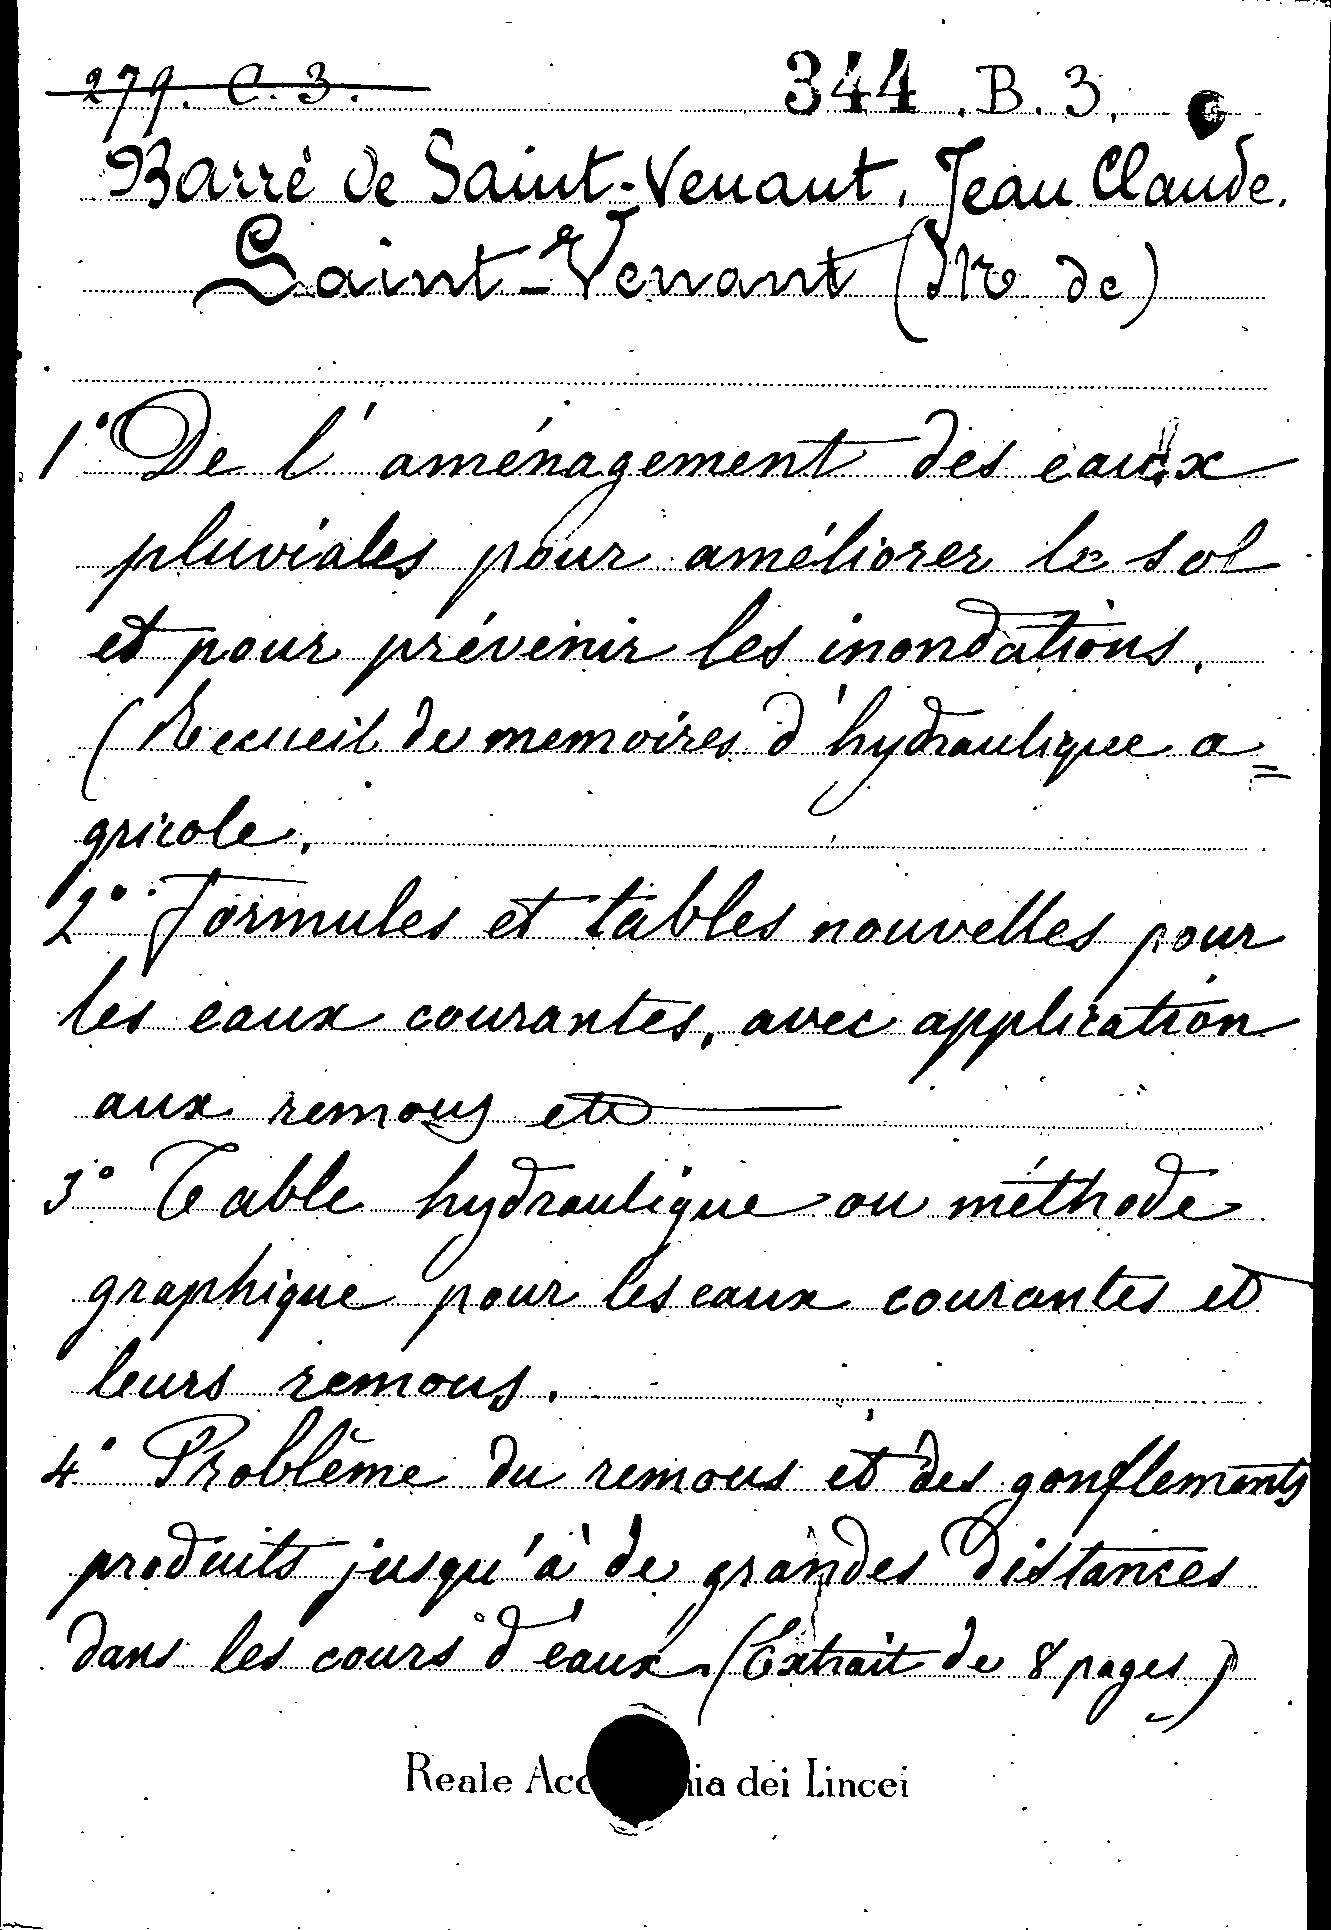 279. C. 3.
344 . B. 3.
Barré de Saint-Venant, Jean Claude.
Saint-Venant (Mr de)
1° De l'aménagement des eaux
pluviales pour améliorer le sol
et pour prévenir les inondations.
(Recueil de memoires d'hydraulique a=
gricole.
2° Formules et tables nouvelles pour
les eaux courantes, avec application
aux remous etc
3° Table hydraulique ou méthode
graphique pour les eaux courantes et
leurs remous.
4° Problême du remous et des gonflements
produits jusqu'à de grandes distances
dans les cours d'éaux. (Extrait de 8 pages)
Reale Acc ia dei Lincei